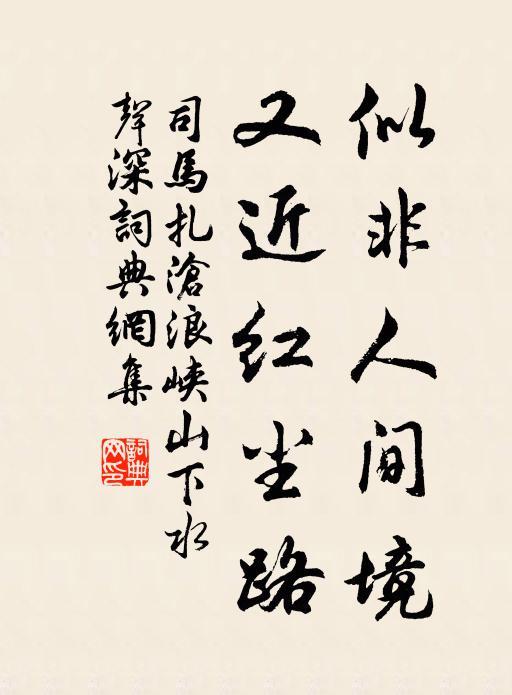 似非人间境
又近红尘路
司馬扎滄浪峡山下水
聲深詞典網集
詞典网印